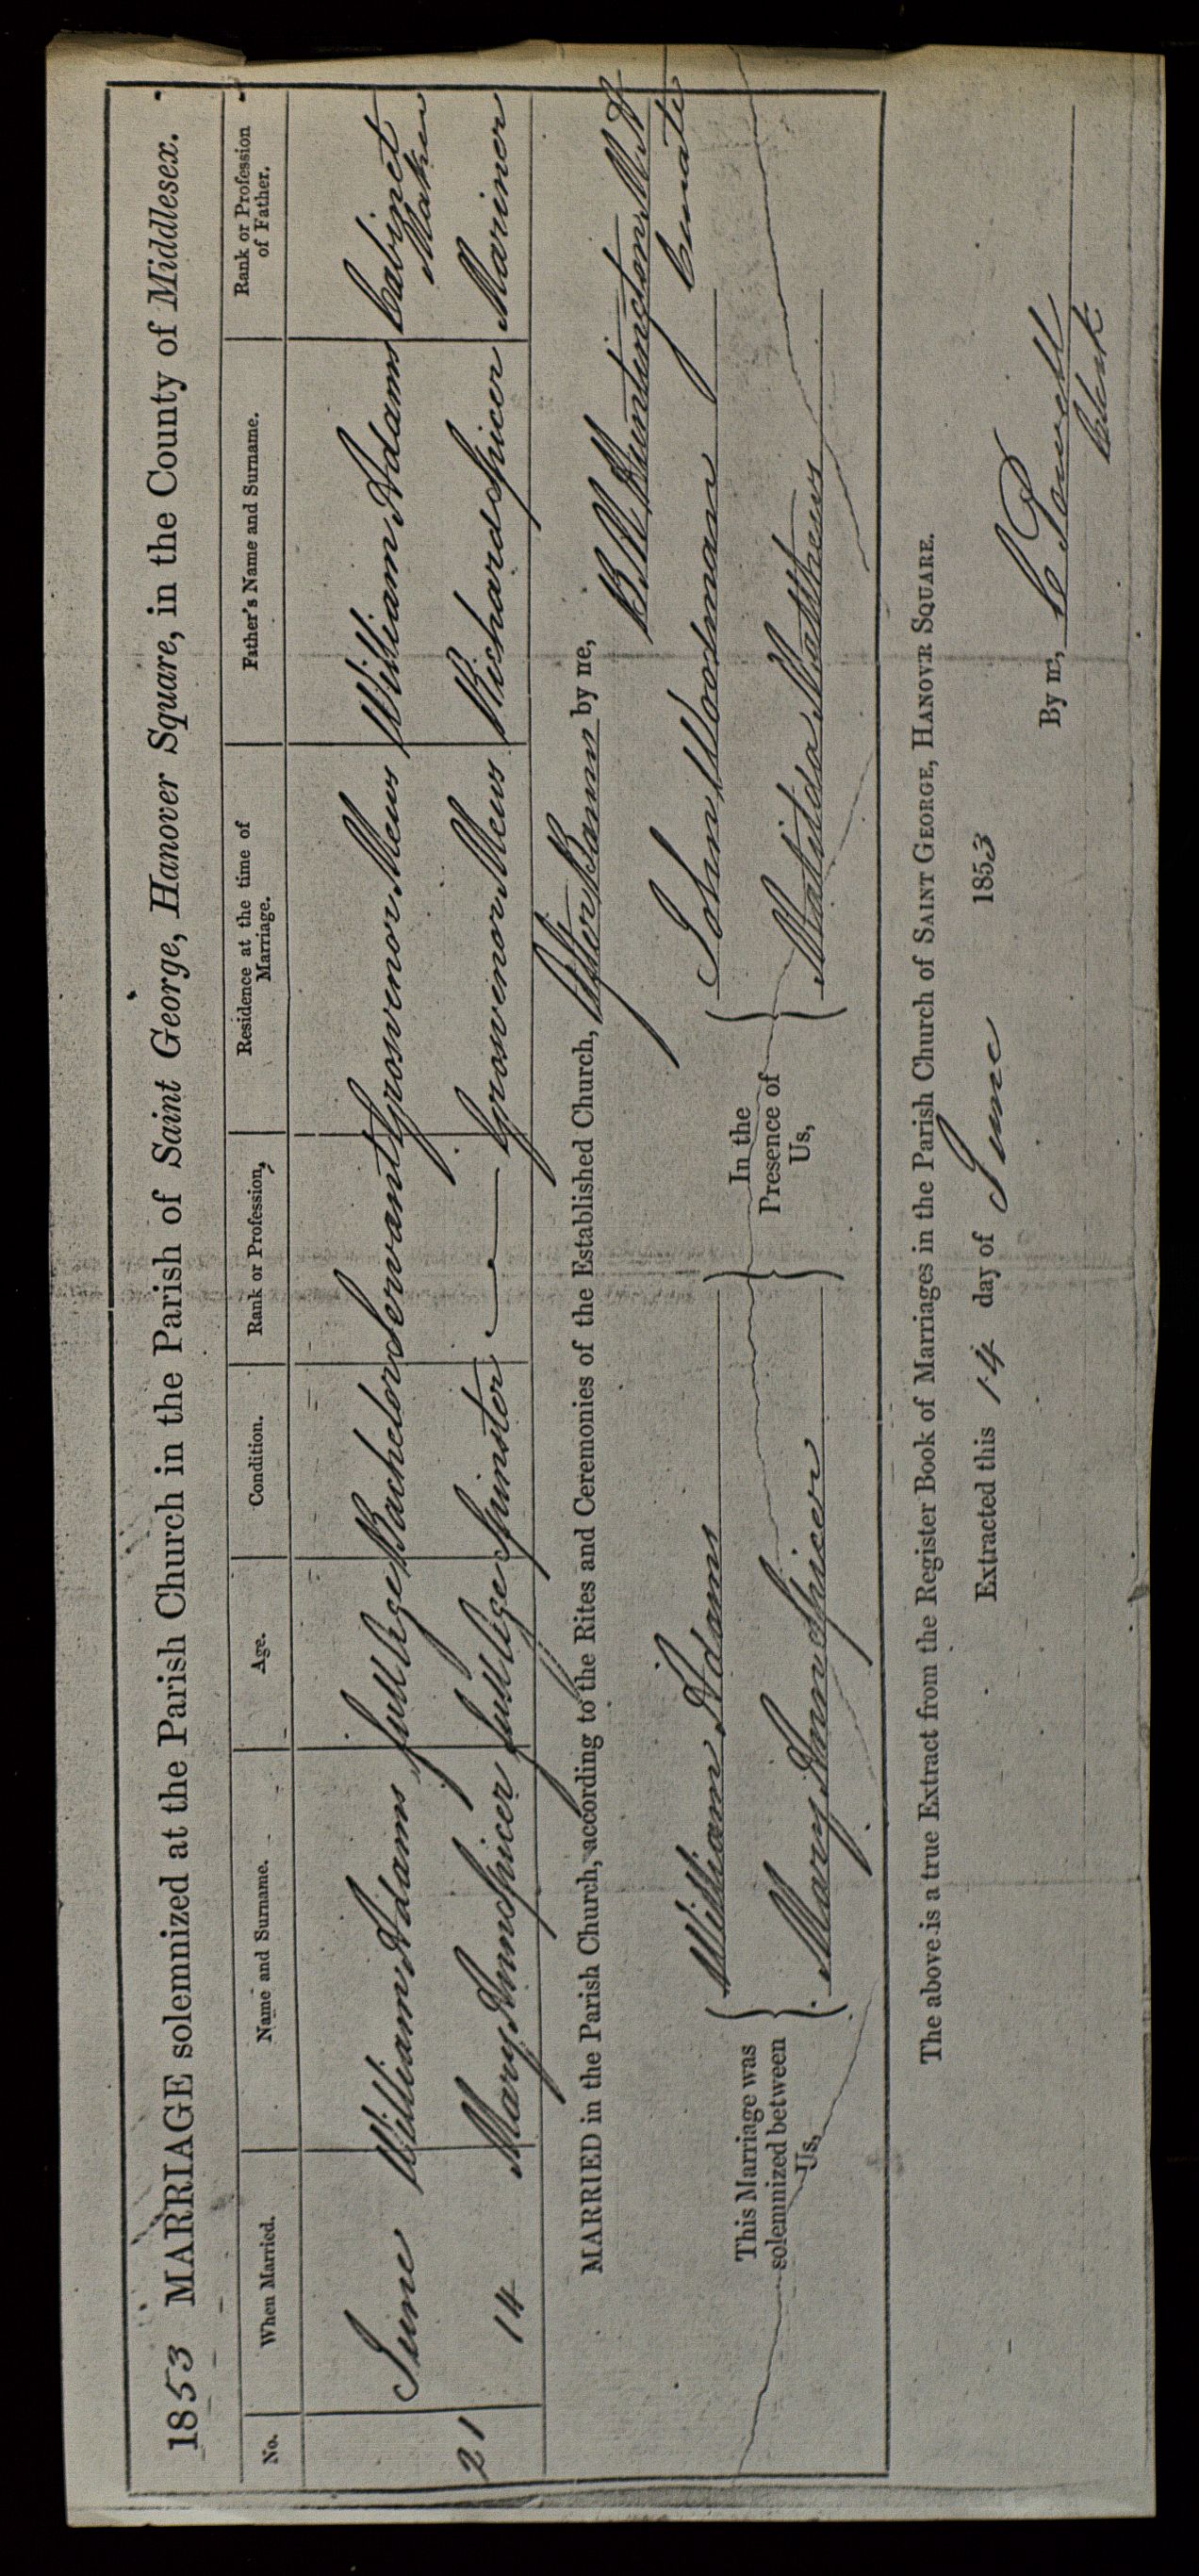 1853 MARRIAGE solemnized at the Parish Church in the Parish of Saint George, Hanover Square, in the County of Middlesex.
No. When Married. Name and Surname. Age. Condition. Rank or Profession, Residence at the time of Marriage. Father's Name and Surname. Rank or Profession of Father.
June William Adams full age Bachelor Servant Grosvenor Mews William Adams Cabinet Maker
21 14 Mary Ann Spicer full age Spinster — Grosvenor Mews Richard Spicer Mariner
MARRIED in the Parish Church, according to the Rites and Ceremonies of the Established Church, After Banns by me,
B M Huntington M A
Curate
This Marriage was solemnized between Us,
William Adams
Mary Ann Spicer
In the Presence of Us,
John Woodman
Matilda Matthews
The above is a true Extract from the Register Book of Marriages in the Parish Church of SAINT GEORGE, HANOVR SQUARE.
Extracted this 14 day of June 1853
By m, C Powell
Clerk